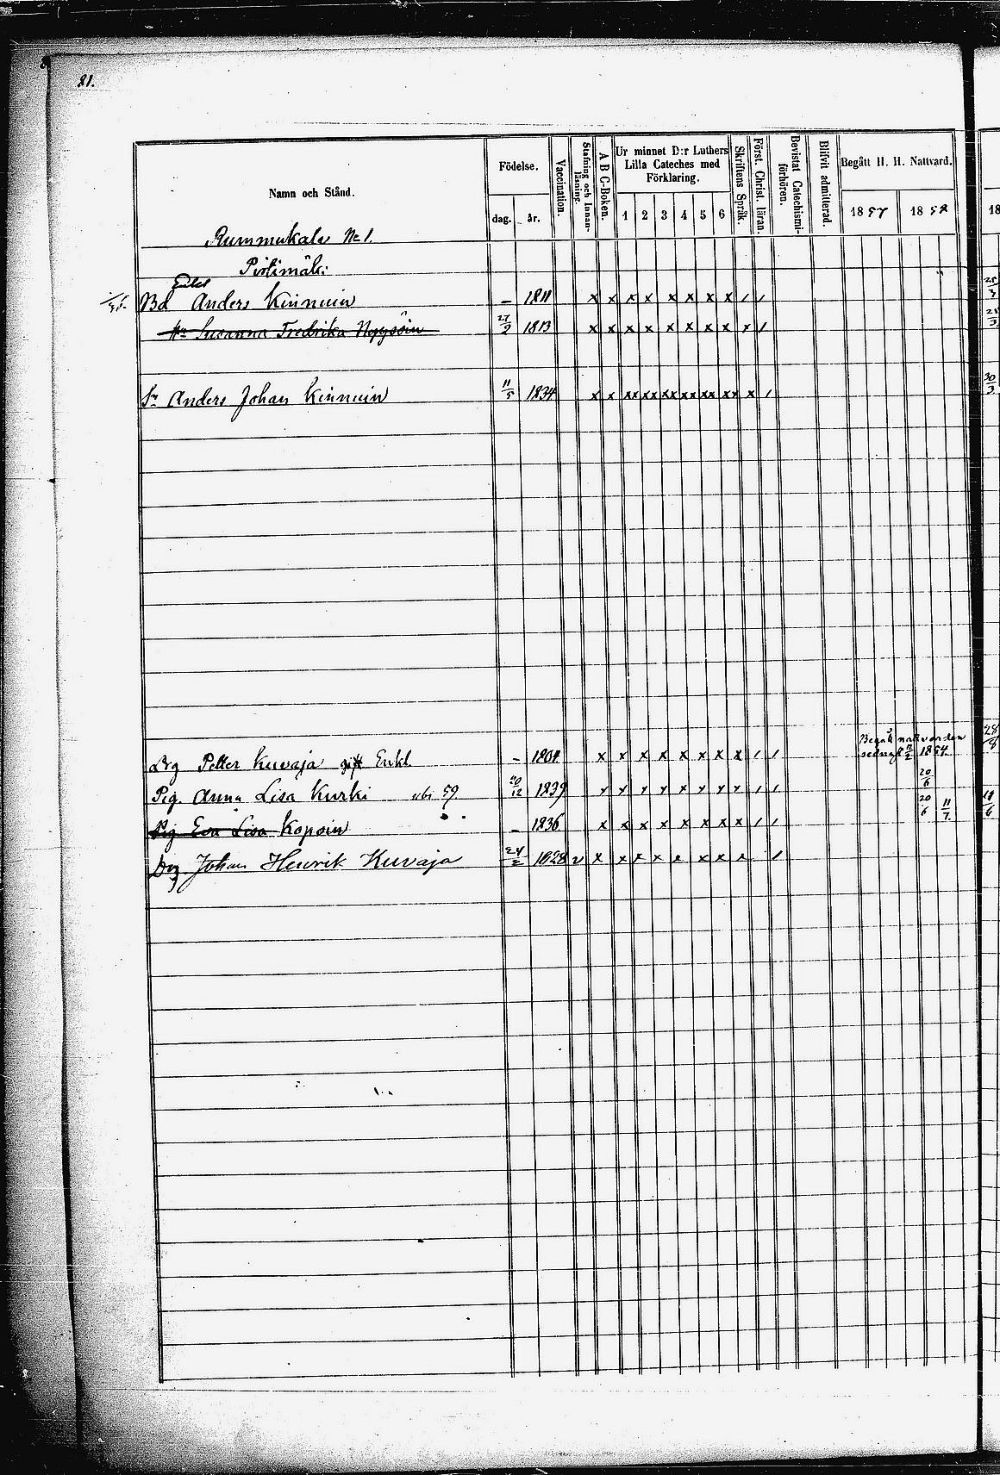 81.
Namn och Stånd.
Födelse.
dag. år.
Vaccination.
Stafning och Innan-läsning.
A B C-Boken.
Ur minnet D:r Luthers
Lilla Cateches med
Förklaring.
1 2 3 4 5 6
Skriftens Språk.
Först. Christ. läran.
Bevistat Catechismi-förhören.
Blifvit admitterad.
Begått H. H. Nattvard.
1857 1858
18
Rummukala No 1.
Pirttimäki
Enkl
Bd Anders Kinnuin – 1811 x x x x x x x x / /
Hu Susanna Fredrika Nyyssöin 27/9 1813 x x x x x x x x x /
Sn Anders Johan Kinnuin 11/5 1834 x x xx xx xx xx xx xx x / 30/3
Begått nattvarden
Drg Petter Kuvaja Enkl – 1801 x x x x x x x x / / 1854. 28/8
Pig. Anna Lisa Kurki 59 20/12 1839 x x x x x x x x / / 20/6
Pig Eva Lisa Kopoin – 1836 x x x x x x x x / / 20/6 11/7
Drg Johan Henrik Kuvaja 24/2 1828 v x x x x x x x x /